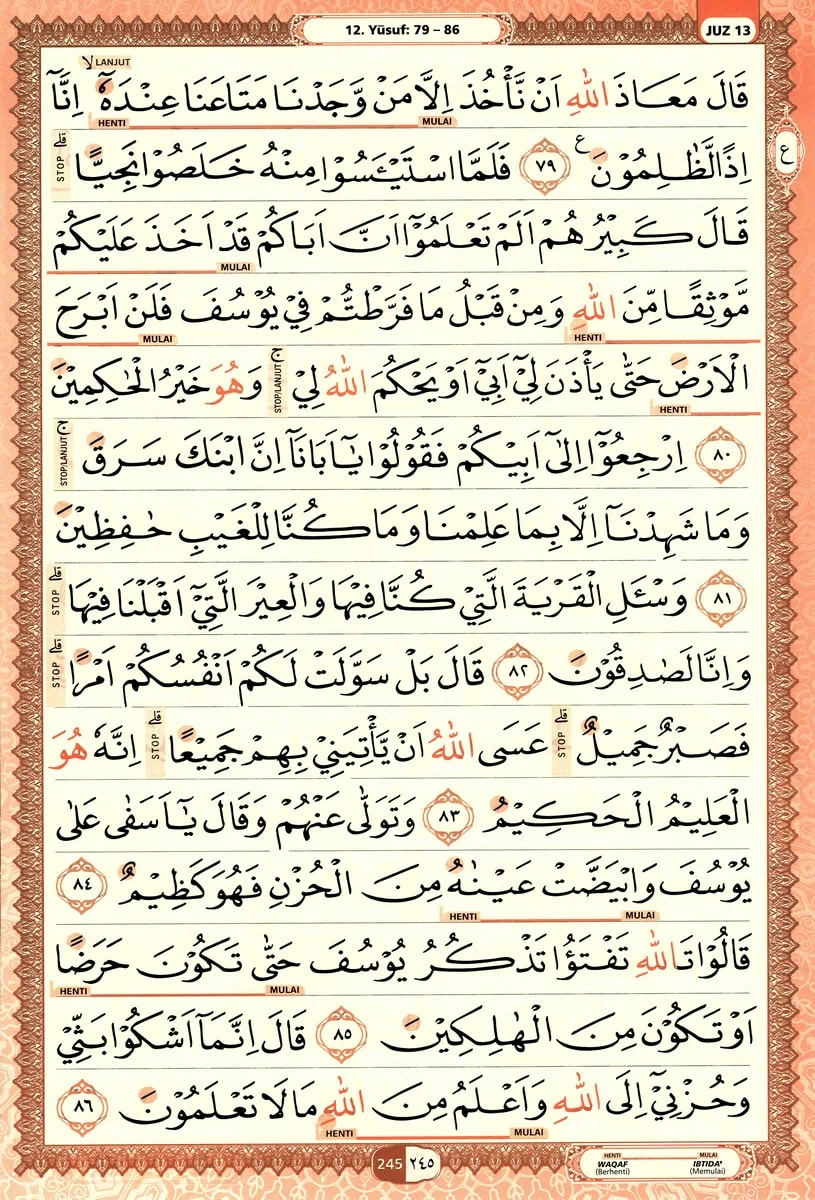 12. Yūsuf: 79 – 86
JUZ 13
لا LANJUT
قَالَ مَعَاذَ اللّٰهِ اَنْ نَّأْخُذَ اِلَّا مَنْ وَّجَدْنَا مَتَاعَنَا عِنْدَهٗٓ اِنَّآ
HENTI MULAI
اِذًا لَّظٰلِمُوْنَ ࣖ ٧٩ فَلَمَّا اسْتَيْـَٔسُوْا مِنْهُ خَلَصُوْا نَجِيًّاۗ
ع
قلى STOP
قَالَ كَبِيْرُهُمْ اَلَمْ تَعْلَمُوْٓا اَنَّ اَبَاكُمْ قَدْ اَخَذَ عَلَيْكُمْ
MULAI
مَّوْثِقًا مِّنَ اللّٰهِ وَمِنْ قَبْلُ مَا فَرَّطْتُّمْ فِيْ يُوْسُفَ فَلَنْ اَبْرَحَ
HENTI MULAI
الْاَرْضَ حَتّٰى يَأْذَنَ لِيْٓ اَبِيْٓ اَوْ يَحْكُمَ اللّٰهُ لِيْۚ وَهُوَ خَيْرُ الْحٰكِمِيْنَ
ج STOP/LANJUT
HENTI
٨٠ اِرْجِعُوْٓا اِلٰٓى اَبِيْكُمْ فَقُوْلُوْا يٰٓاَبَانَآ اِنَّ ابْنَكَ سَرَقَۚ
ج STOP/LANJUT
وَمَا شَهِدْنَآ اِلَّا بِمَا عَلِمْنَا وَمَا كُنَّا لِلْغَيْبِ حٰفِظِيْنَ
٨١ وَسْـَٔلِ الْقَرْيَةَ الَّتِيْ كُنَّا فِيْهَا وَالْعِيْرَ الَّتِيْٓ اَقْبَلْنَا فِيْهَاۗ
قلى STOP
وَاِنَّا لَصٰدِقُوْنَ ٨٢ قَالَ بَلْ سَوَّلَتْ لَكُمْ اَنْفُسُكُمْ اَمْرًاۗ
قلى STOP
فَصَبْرٌ جَمِيْلٌۗ عَسَى اللّٰهُ اَنْ يَّأْتِيَنِيْ بِهِمْ جَمِيْعًاۗ اِنَّهٗ هُوَ
قلى STOP قلى STOP
الْعَلِيْمُ الْحَكِيْمُ ٨٣ وَتَوَلّٰى عَنْهُمْ وَقَالَ يٰٓاَسَفٰى عَلٰى
يُوْسُفَ وَابْيَضَّتْ عَيْنٰهُ مِنَ الْحُزْنِ فَهُوَ كَظِيْمٌ ٨٤
HENTI MULAI
قَالُوْا تَاللّٰهِ تَفْتَؤُا تَذْكُرُ يُوْسُفَ حَتّٰى تَكُوْنَ حَرَضًا
HENTI MULAI
اَوْ تَكُوْنَ مِنَ الْهٰلِكِيْنَ ٨٥ قَالَ اِنَّمَآ اَشْكُوْا بَثِّيْ
وَحُزْنِيْٓ اِلَى اللّٰهِ وَاَعْلَمُ مِنَ اللّٰهِ مَا لَا تَعْلَمُوْنَ ٨٦
HENTI MULAI
245 ٢٤٥
HENTI MULAI
WAQAF IBTIDA'
(Berhenti) (Memulai)